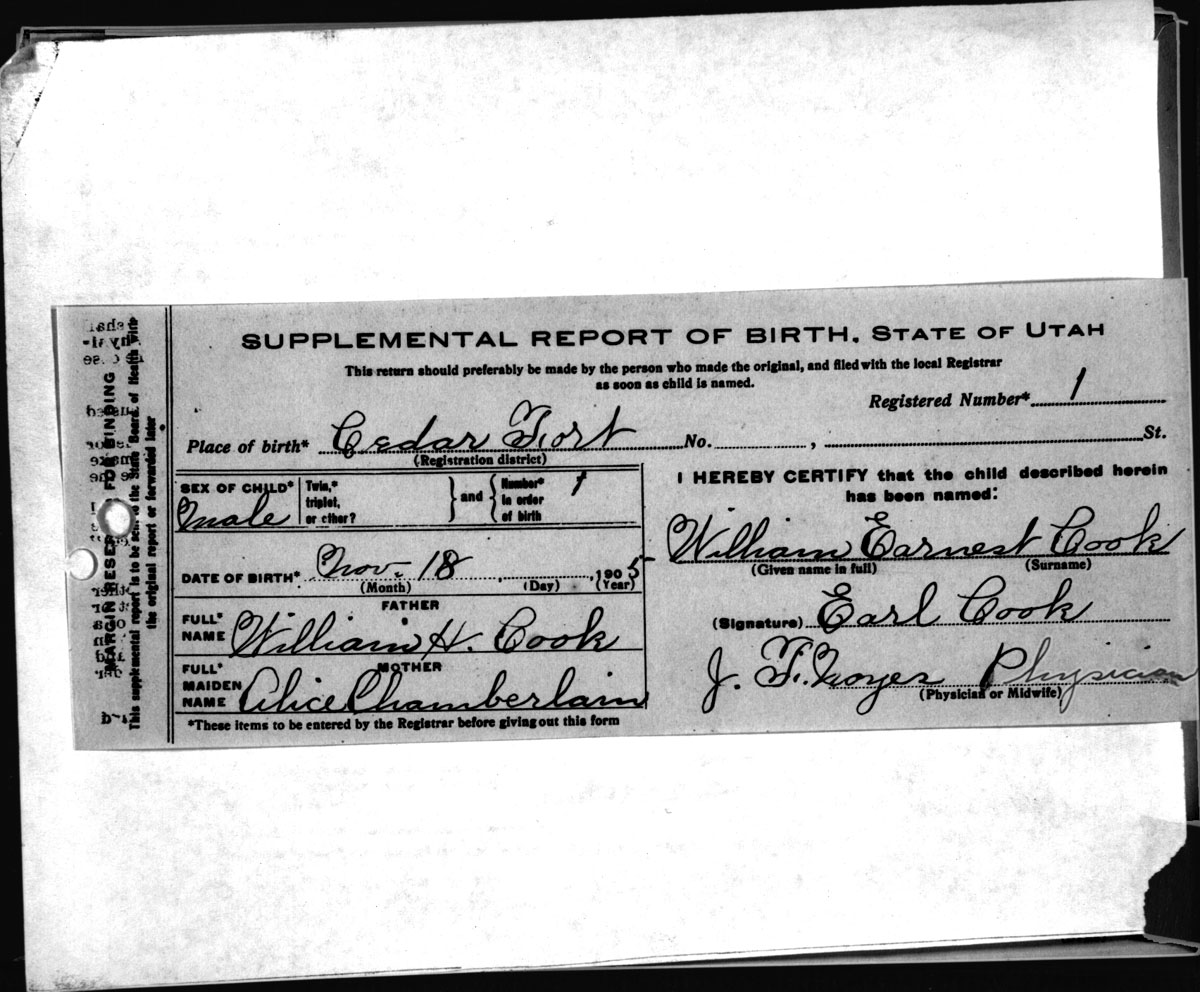 SUPPLEMENTAL REPORT OF BIRTH. STATE OF UTAH
This return should preferably be made by the person who made the original, and filed with the local Registrar
as soon as child is named.
Registered Number* 1
Place of birth* Cedar Fort No. , St.
(Registration district)
SEX OF CHILD* Male
Twin,* triplet, or other? } and { Number* in order of birth 1
DATE OF BIRTH* Nov. 18, 1905
(Month) (Day) (Year)
FATHER
FULL* NAME William H. Cook
MOTHER
FULL* MAIDEN NAME Alice Chamberlain
*These items to be entered by the Registrar before giving out this form
I HEREBY CERTIFY that the child described herein
has been named:
William Earnest Cook
(Given name in full) (Surname)
(Signature) Earl Cook
J. F. Noyes Physician
(Physician or Midwife)
MARGIN RESER FOR BINDING
This supplemental report is to be sent to the State Board of Health with
the original report or forwarded later